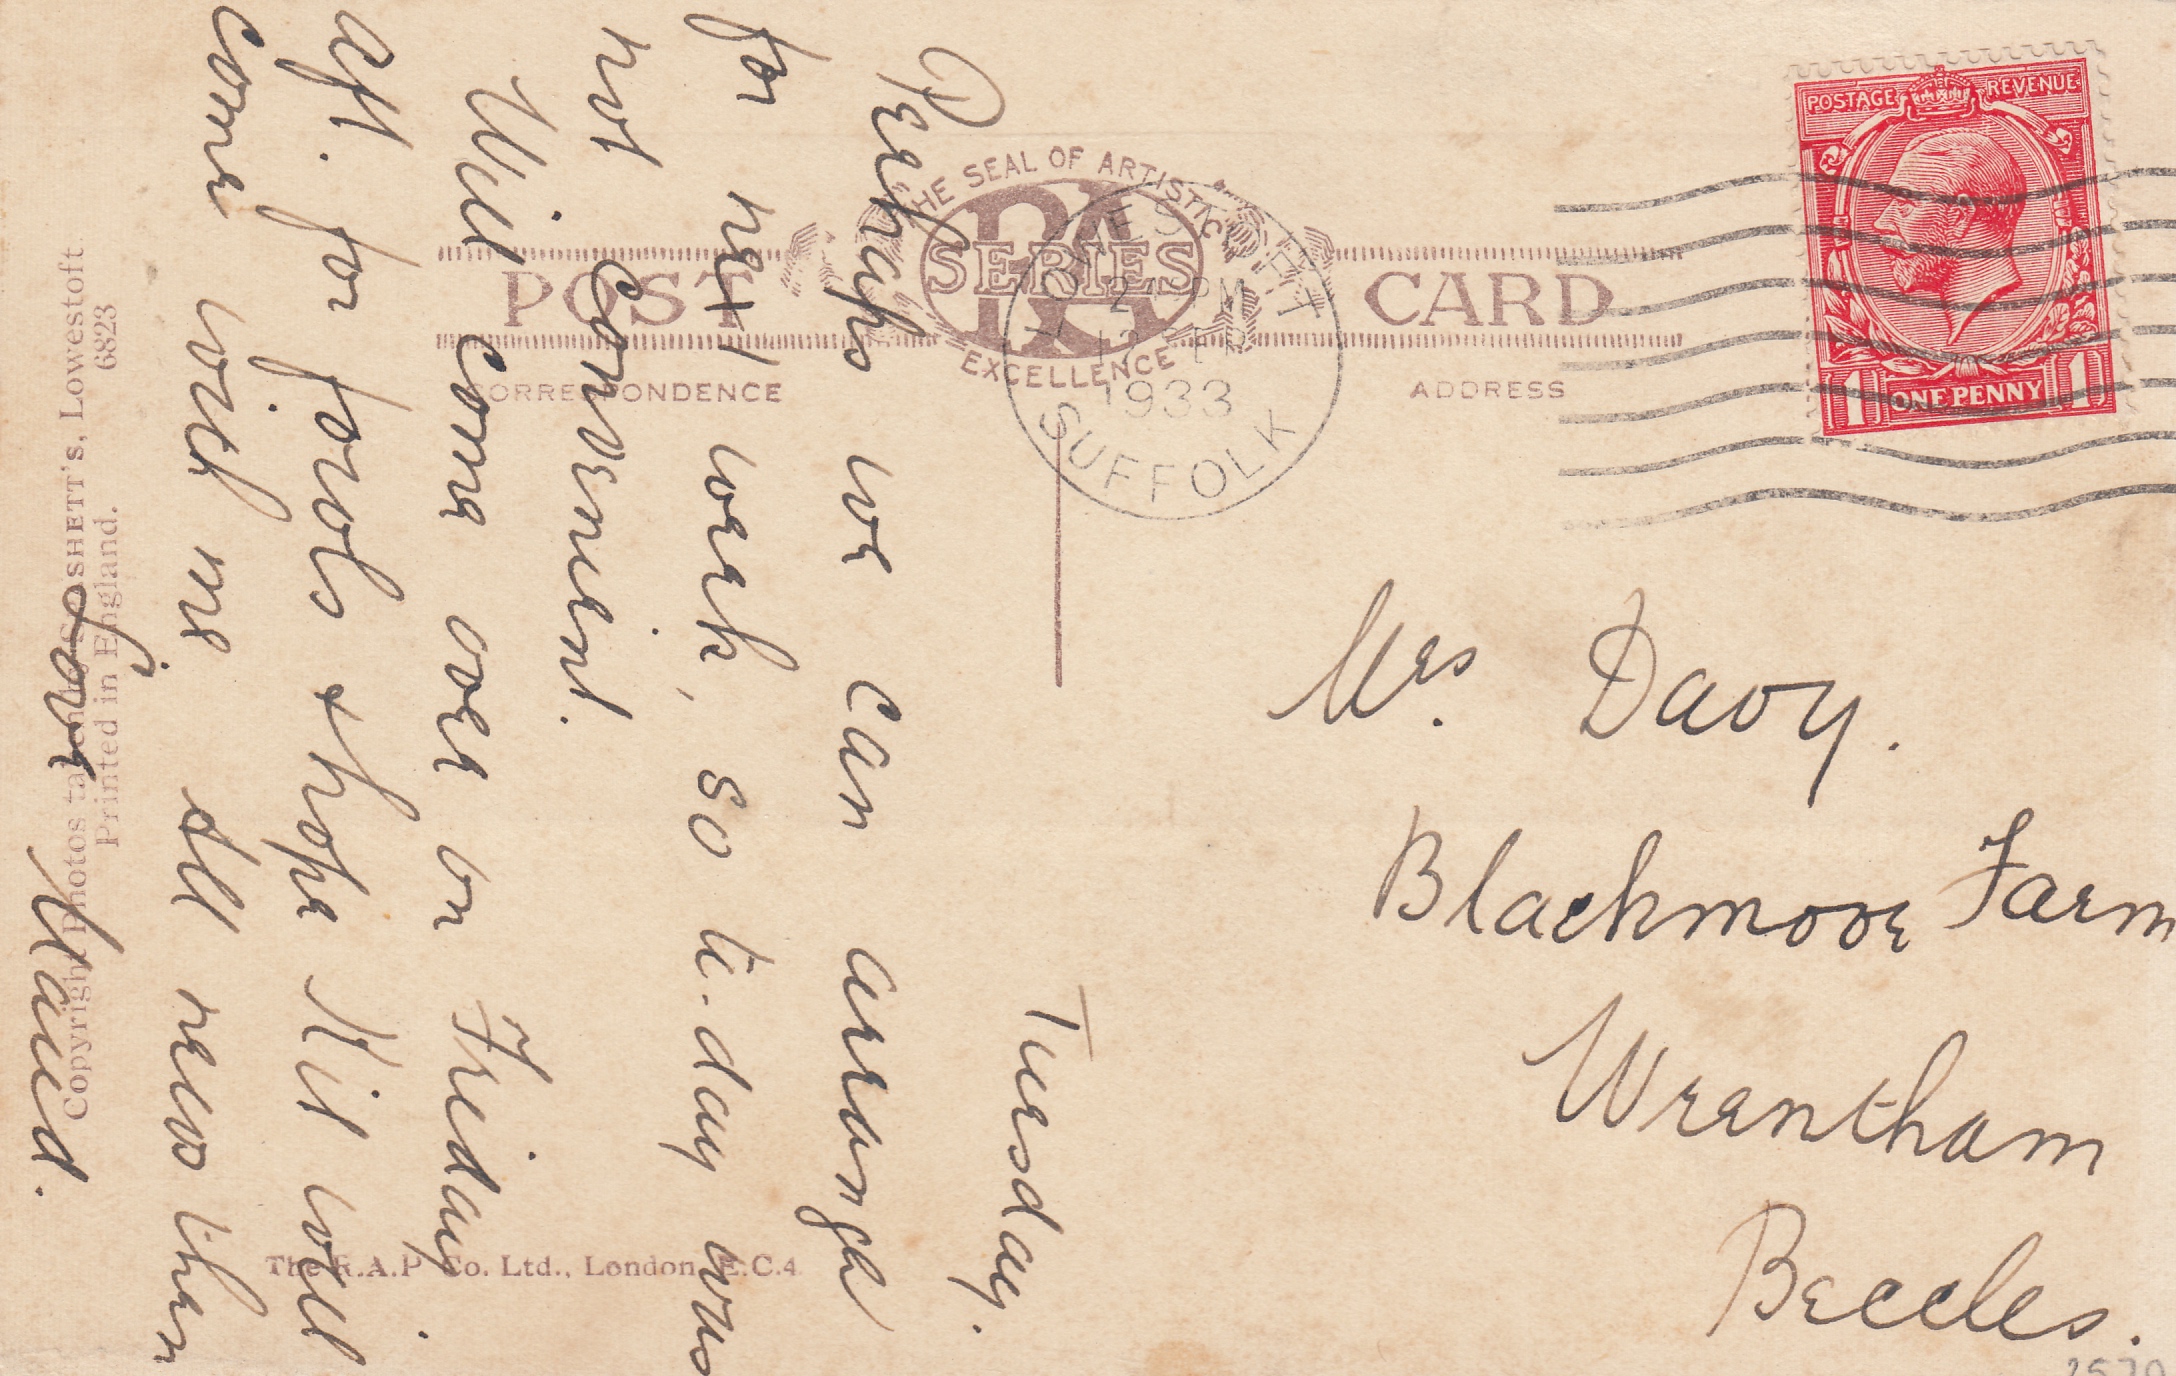 POSTAGE REVENUE
1 ONE PENNY 1
THE SEAL OF ARTISTIC
RA
SERIES
EXCELLENCE
POST CARD
CORRESPONDENCE ADDRESS
LOWESTOFT
PM
12 SEP
1933
SUFFOLK
Tuesday.
Perhaps we can arrange
for next week, so to-day was
not convenient.
Will come over on Friday
aft. for fowls & hope Kit will
come with me. All news then
Love Maud.
Mrs. Davy.
Blackmoor Farm
Wrentham
Beccles.
Copyright Photos taken by BOSHETT's, Lowestoft.
Printed in England. 6823
The R.A.P. Co. Ltd., London, E.C.4